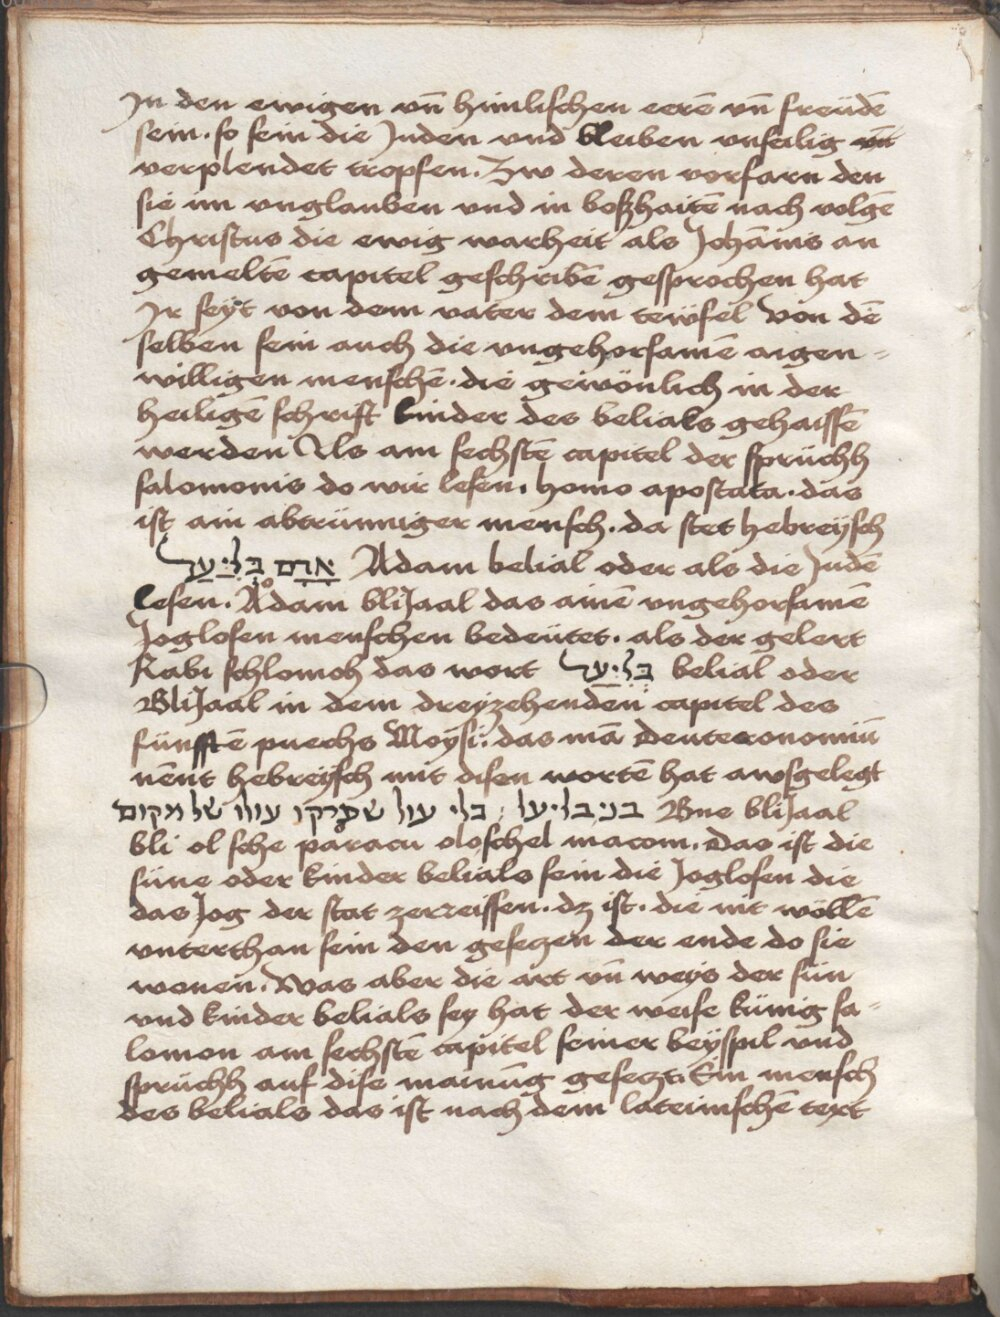 Jn den ewigen vn̄ himlischen eerē vn̄ freüdē
sein. so sein die Juden vnd bleiben vnselig vn̄
verplendet tropfen. Zw deren vorfarn den
sie im vnglauben vnd in boßhaitē nach volgē
Christus die ewig warheit als Johānis an
gemeltē capitel geschribē gesprochen hat
Jr seyt von dem vater dem tewfel Von dē
selben sein auch die vngehorsamē aigen-
willigen menschē. die gewönlich in der
heiligē schrift kinder des belials gehaissē
werden Als am sechstē capitel der sprüchh
salomonis do wir lesen. homo apostata. das
ist ain abtrünniger mensch. da stet hebreysch
אָדָם בְּלִיַּעַל Adam belial oder als die Judē
lesen. Adam bliJaal das ainē vngehorsamē
Joglosen menschen bedeütet. als der gelert
Rabi schlomoh das wort בְּלִיַּעַל belial oder
BliJaal in dem dreyzehenden capitel des
fünfftē puechs Moysi. das mā Deuteronomiū
nēnt hebreysch mit disen wortē hat awsgelegt
בני בליעל בלי עול שפרקו עולו של מקום Bne bliJaal
bli ol sche paracu oloschel macom. Das ist die
süne oder kinder belials sein die Joglosen die
das Jog der stat zerreissen. dz ist. die nit wöllē
vnterthan sein den gesezen der ende do sie
wonen. Was aber die art vn̄ weys der sün
vnd kinder belials sey hat der weise künig sa-
lomon am sechstē capitel seiner beyspil vnd
sprüchh auf dise mainūg gesezt. Ein mensch
des belials das ist nach dem lateinischē text